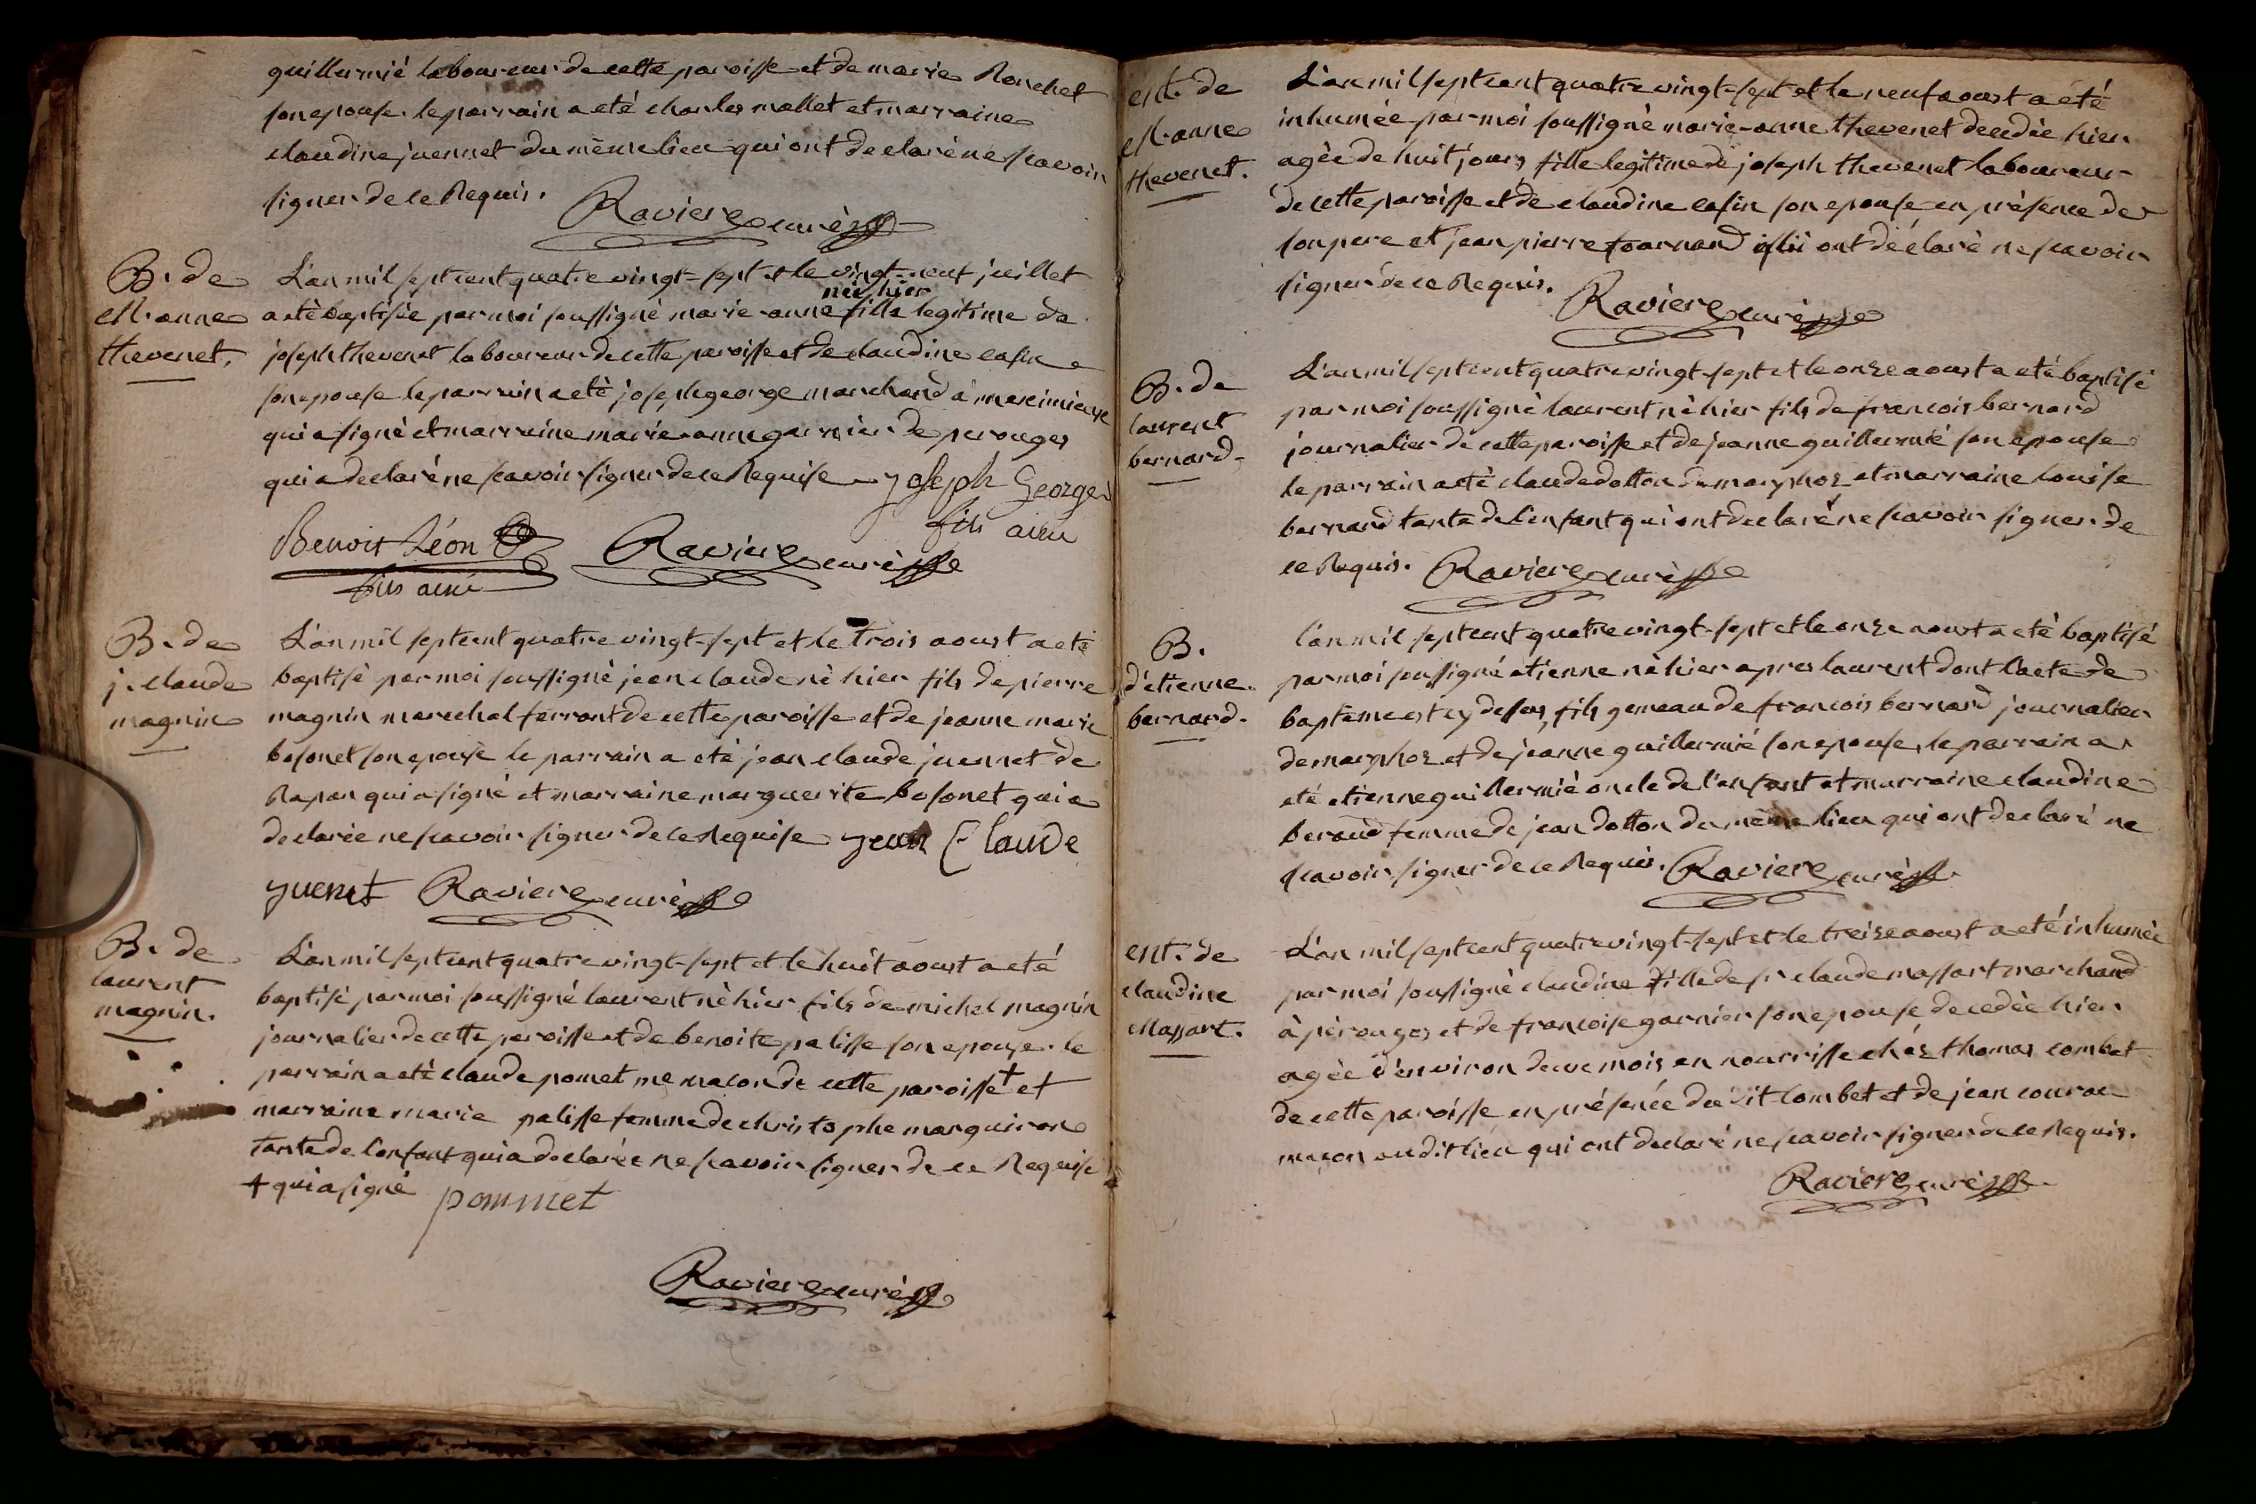 guillermié laboureur de cette paroisse et de marie Ronchet
son epouse. le parrain a eté charles mallet et marraine
claudine juennet du même lieu qui ont declaré ne scavoir
signer de ce Requis.
Raviere curé
B. de
M. anne
thevenet.
L'an mil sept cent quatre vingt-sept et le vingt-neuf juillet
née hier
a eté baptisée par moi soussigné marie-anne fille legitime de
joseph thevenet laboureur de cette paroisse et de claudine
son epouse le parrain a eté joseph george marchand à meximieux
qui a signé et marraine marie-anne garnier de perouges
qui a declaré ne scavoir signer de ce Requise joseph George
fils ainé
Benoit Léon Raviere curé
fils ainé
B. de
j. claude
magnin
L'an mil sept cent quatre vingt-sept et le trois aoust a eté
baptisé par moi soussigné jean claude né hier fils de pierre
magnin marechal ferrant de cette paroisse et de jeanne marie
bosonet son epouse le parrain a eté jean claude juennet de
Rapan qui a signé et marraine marguerite bosonet qui a
declarée ne scavoir signer de ce Requise jean Claude
juenet Raviere curé
B. de
laurent
magnin.
L'an mil sept cent quatre vingt-sept et le huit aoust a eté
baptisé par moi soussigné laurent né hier fils de michel magnin
journalier de cette paroisse et de benoite palisse son epouse. le
parrain a eté claude pomet me macon de cette paroisse + et
marraine marie palisse femme de christophe marguiron
tante de l'enfant qui a declarée ne scavoir signer de ce Requise
+ qui a signé pommet
Raviere curé
ent. de
M. anne
thevenet.
L'an mil sept cent quatre vingt-sept et le neuf aoust a été
inhumée par moi soussigné marie-anne thevenet decedée hier
agée de huit jours fille legitime de joseph thevenet laboureur
de cette paroisse et de claudine son epouse en présence de
son pere et jean pierre qui ont déclaré ne scavoir
signer de ce Requis.
Raviere curé
B. de
laurent
bernard
L'an mil sept cent quatre vingt-sept et le onze aoust a eté baptisé
par moi soussigné laurent né hier fils de francois bernard
journalier de cette paroisse et de jeanne guillermié son epouse
le parrain a eté claude dotton de marphoz et marraine louise
bernard tante de l'enfant qui ont declaré ne scavoir signer de
ce Requis. Raviere curé
B.
d'etienne
bernard.
l'an mil sept cent quatre vingt-sept et le onze aoust a eté baptisé
par moi soussigné etienne né hier apres laurent dont l'acte de
baptême est cy dessus, fils gemeau de francois bernard journalier
de marphoz et de jeanne guillermié son epouse, le parrain a
eté etienne guillermié oncle de l'enfant et marraine claudine
beraud femme de jean dotton du même lieu qui ont declaré ne
scavoir signer de ce Requis. Raviere curé
ent. de
claudine
Massart.
L'an mil sept cent quatre vingt-sept et le treize aoust a eté inhumée
par moi soussigné claudine fille de sr claude massart marchand
à pérouges et de francoise garnier son epouse decedée hier
agée d'environ deux mois en nourrisse chéz thomas combet
de cette paroisse en présence du dit Combet et de jean
maçon au dit lieu qui ont declaré ne scavoir signer de ce Requis.
Raviere curé